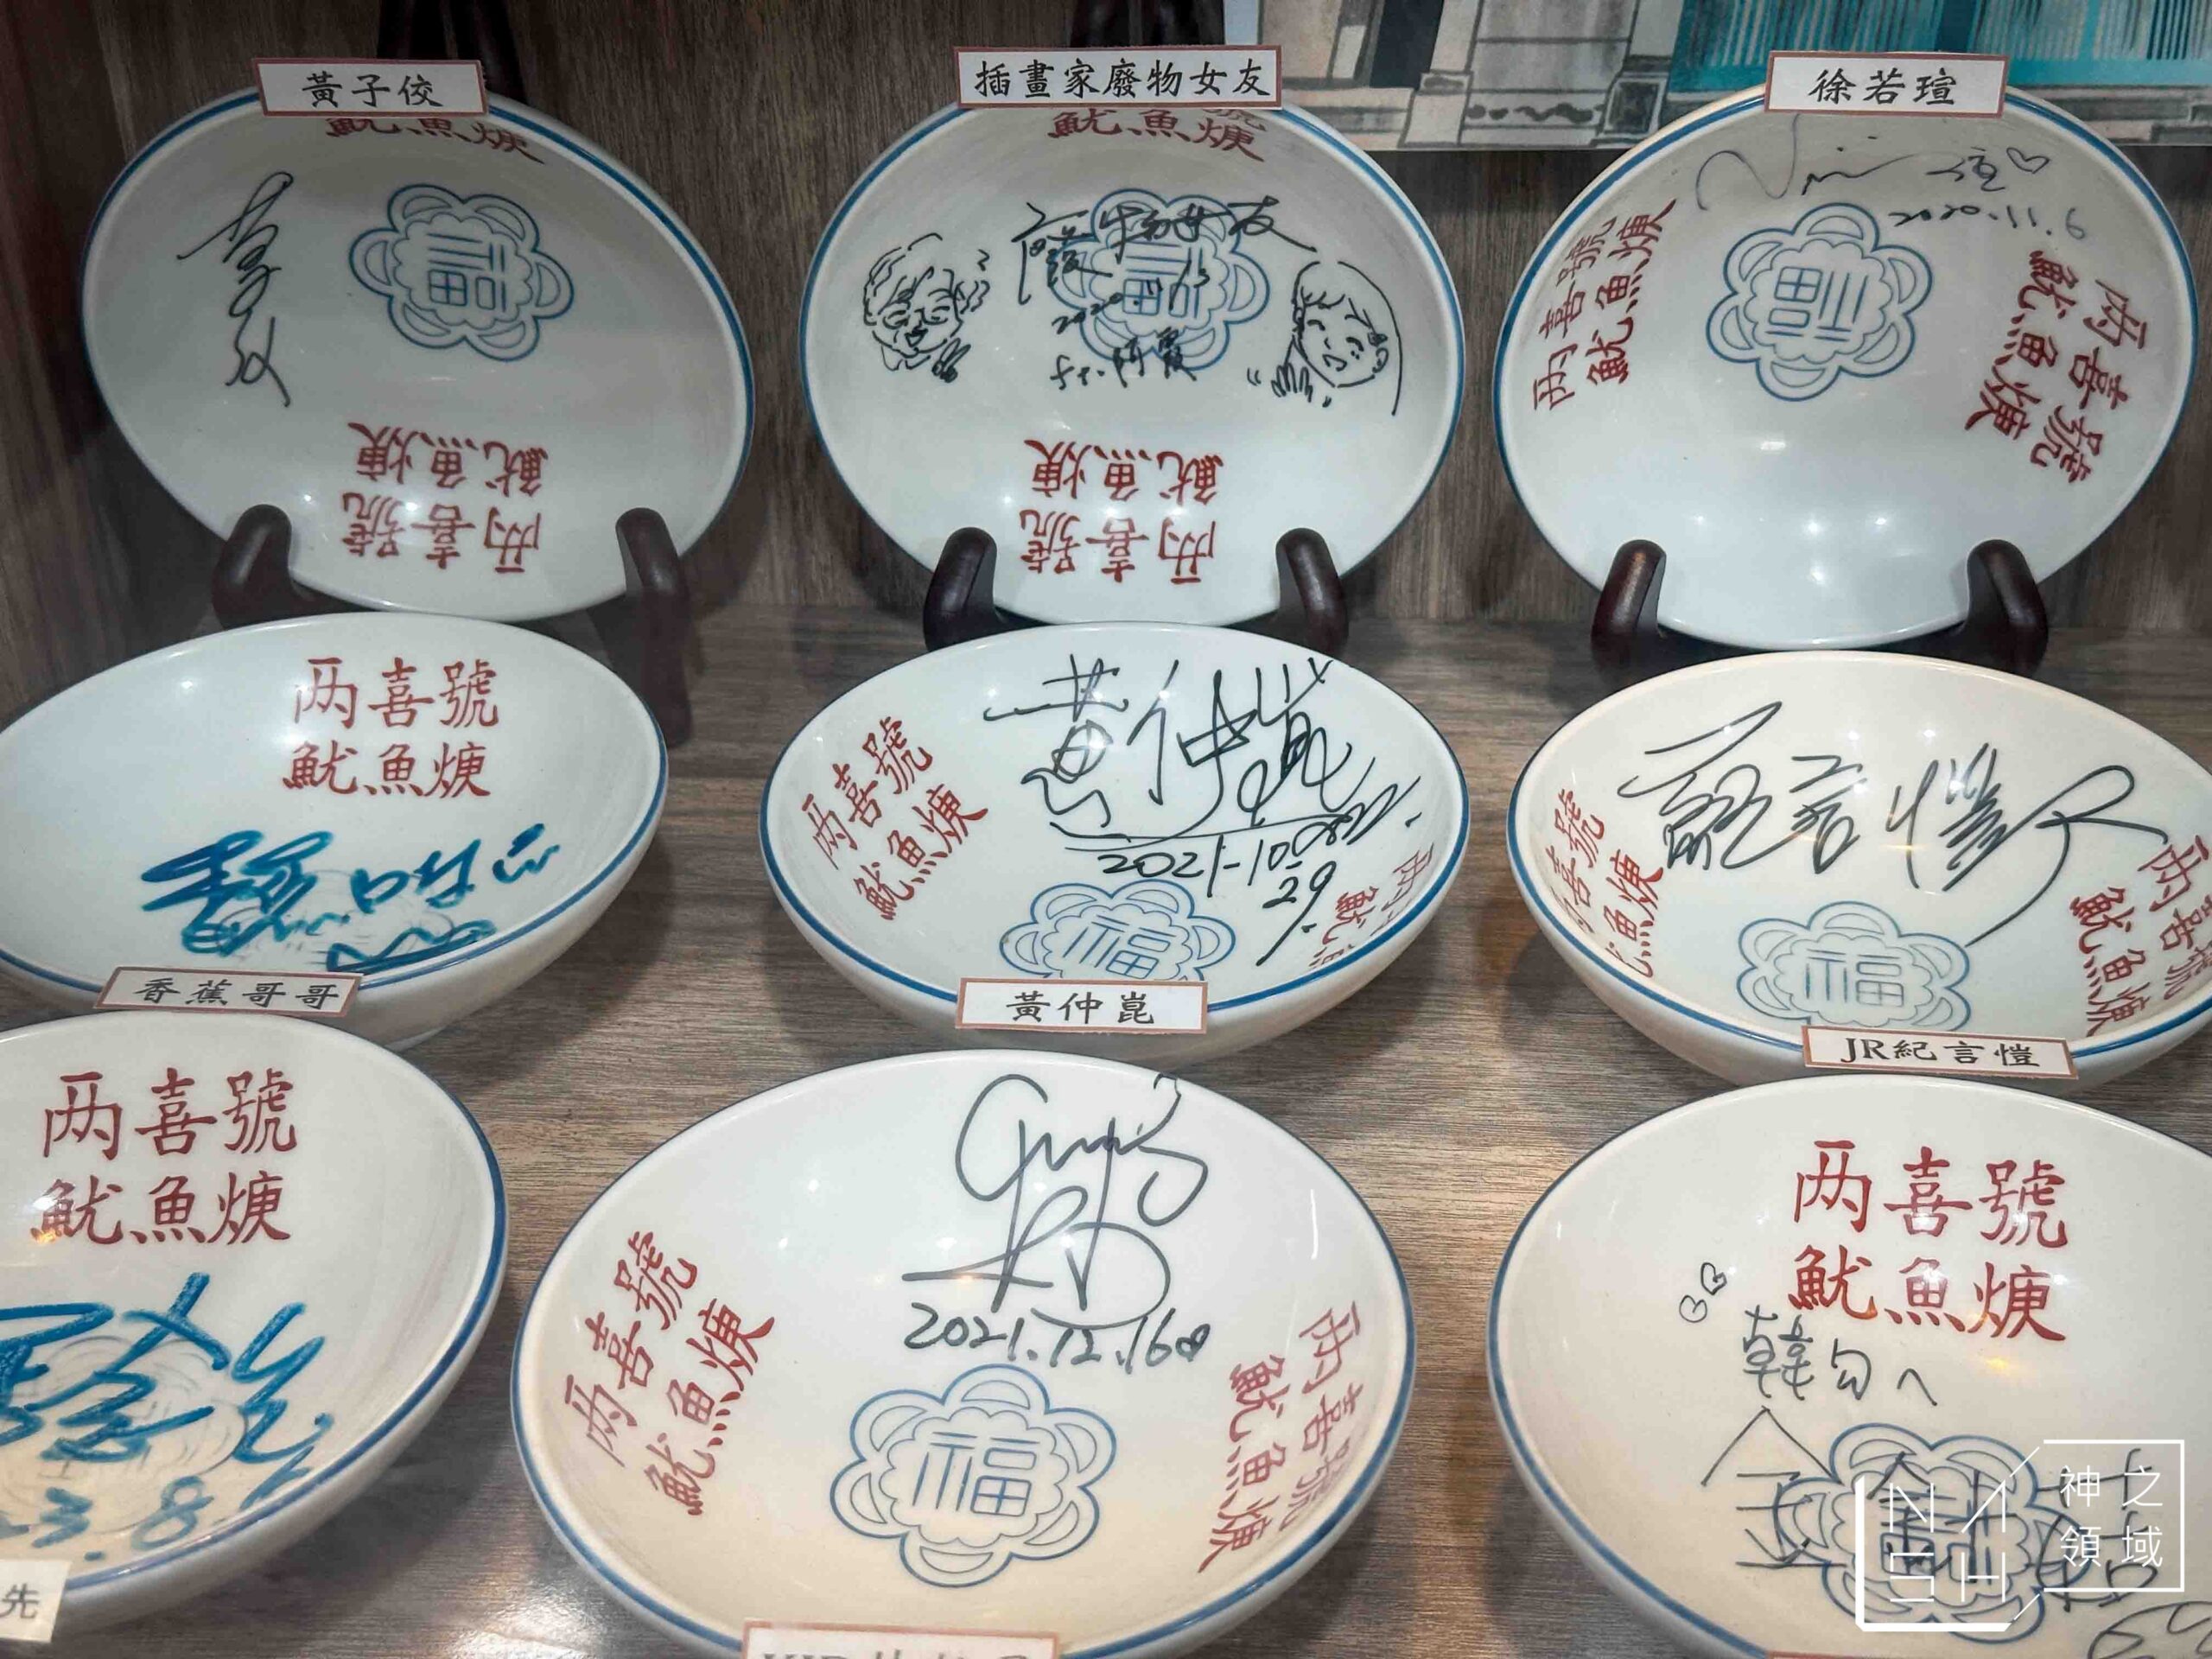 黃子佼
魷魚焿
福
魷魚焿
兩喜號
插畫家廢物女友
魷魚焿
廢物女友
福
to.阿霞
魷魚焿
兩喜號
徐若瑄
Vivi 瑄♡
2020.11.6
兩喜號
魷魚焿
福
兩喜號
魷魚焿
兩喜號
魷魚焿
香蕉哥哥
黃仲崑
2021-10-
29.
兩喜號
魷魚焿
福
黃仲崑
紀言愷
喜號
魚焿
福
兩喜號
魷魚焿
JR紀言愷
兩喜號
魷魚焿
3.8
先
2021.12.16
兩喜號
魷魚焿
福
兩喜號
魷魚焿
兩喜號
魷魚焿
NASH
神之
領域